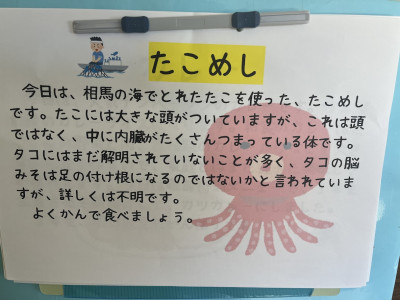 たこめし
今日は、相馬の海でとれたたこを使った、たこめし
です。たこには大きな頭がついていますが、これは頭
ではなく、中に内臓がたくさんつまっている体です。
タコにはまだ解明されていないことが多く、タコの脳
みそは足の付け根になるのではないかと言われていま
すが、詳しくは不明です。
よくかんで食べましょう。